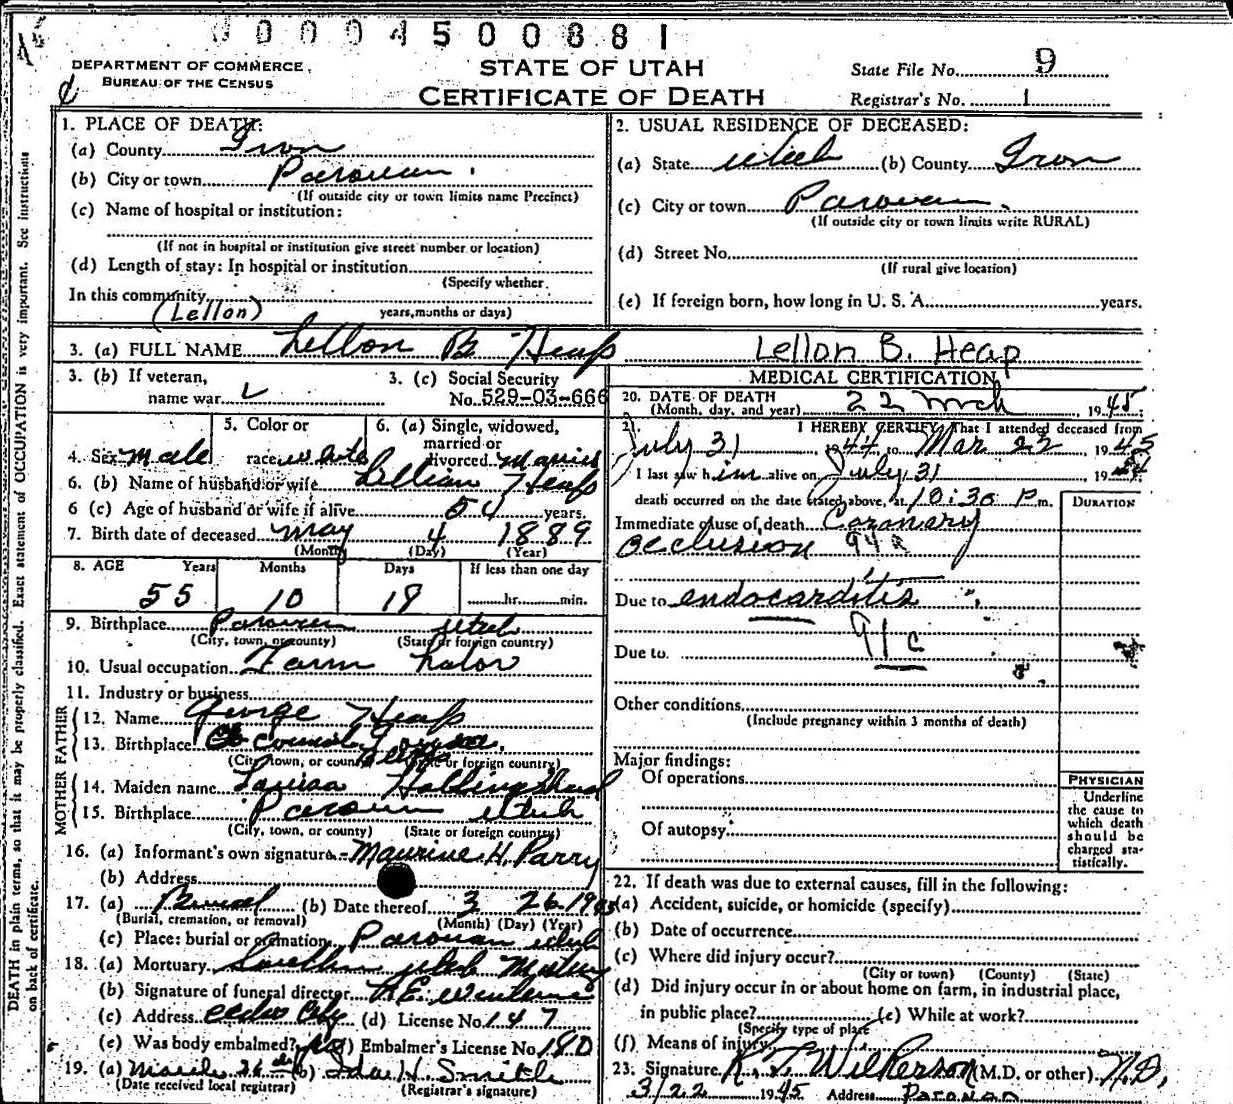 00004500881
DEPARTMENT OF COMMERCE
BUREAU OF THE CENSUS
STATE OF UTAH
CERTIFICATE OF DEATH
State File No. 9
Registrar's No. 1
DEATH in plain terms, so that it may be properly classified. Exact statement of OCCUPATION is very important. See instructions
on back of certificate.
1. PLACE OF DEATH:
(a) County Iron
(b) City or town Parowan
(If outside city or town limits name Precinct)
(c) Name of hospital or institution:
(If not in hospital or institution give street number or location)
(d) Length of stay: In hospital or institution
(Specify whether
In this community
years, months or days)
(Lellon)
2. USUAL RESIDENCE OF DECEASED:
(a) State Utah (b) County Iron
(c) City or town Parowan
(If outside city or town limits write RURAL)
(d) Street No.
(If rural give location)
(e) If foreign born, how long in U. S. A. years.
3. (a) FULL NAME Lellon B Heap Lellon B. Heap
3. (b) If veteran,
name war
3. (c) Social Security
No. 529-03-666
4. Sex Male
5. Color or
race white
6. (a) Single, widowed,
married or
divorced Married
6. (b) Name of husband or wife Lillian Heap
6 (c) Age of husband or wife if alive 54 years.
7. Birth date of deceased May 4 1889
(Month) (Day) (Year)
8. AGE Years Months Days If less than one day
55 10 18 hr. min.
9. Birthplace Parowan Utah
(City, town, or county) (State or foreign country)
10. Usual occupation Farm Labor
11. Industry or business
FATHER
12. Name George Heap
13. Birthplace
(City, town, or county) (State or foreign country)
MOTHER
14. Maiden name Louisa Hollingshead
15. Birthplace Parowan Utah
(City, town, or county) (State or foreign country)
16. (a) Informant's own signature Maurine H. Parry
(b) Address
17. (a) Burial (b) Date thereof 3 26 1945
(Burial, cremation, or removal) (Month) (Day) (Year)
(c) Place: burial or cremation Parowan Utah
18. (a) Mortuary Southern Utah Mortuary
(b) Signature of funeral director
(c) Address Cedar City (d) License No. 147
(e) Was body embalmed? (f) Embalmer's License No. 180
19. (a) March 26 (b) Ida H. Smith
(Date received local registrar) (Registrar's signature)
MEDICAL CERTIFICATION
20. DATE OF DEATH
(Month, day, and year) 22 Mch, 1945
21. I HEREBY CERTIFY, That I attended deceased from
July 31 1944 to Mar 22 1945
I last saw him alive on July 31 19
death occurred on the date stated above, at 10:30 P.m.
DURATION
Immediate cause of death Coronary
occlusion 94a
Due to endocarditis
Due to 91c
Other conditions
(Include pregnancy within 3 months of death)
Major findings:
Of operations
Of autopsy
PHYSICIAN
Underline
the cause to
which death
should be
charged sta-
tistically.
22. If death was due to external causes, fill in the following:
(a) Accident, suicide, or homicide (specify)
(b) Date of occurrence
(c) Where did injury occur?
(City or town) (County) (State)
(d) Did injury occur in or about home on farm, in industrial place,
in public place? (e) While at work?
(Specify type of place
(f) Means of injury
23. Signature R. T. Wilkerson (M.D. or other) M.D.
3/22 1945 Address Parowan